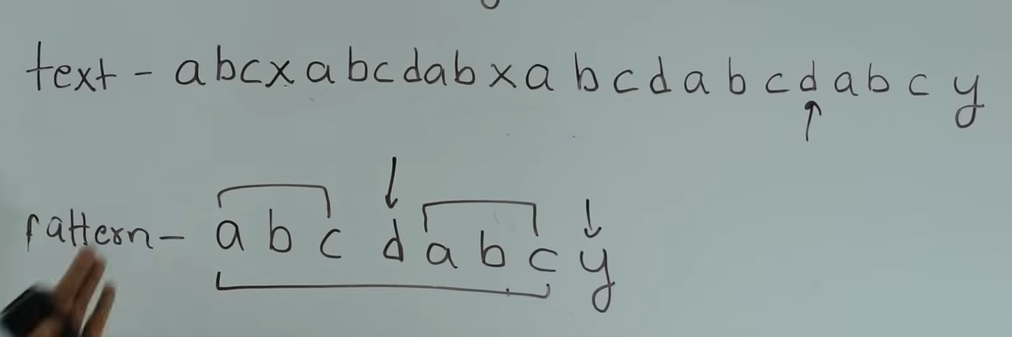 text - abcxabcdabxabcdabcdabcy
pattern - abcdabcy